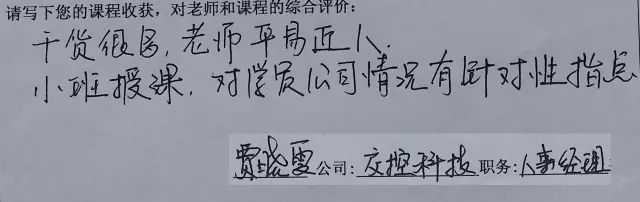 请写下您的课程收获，对老师和课程的综合评价：
干货很多，老师平易近人，
小班授课，对学员公司情况有针对性指点
贾晓雪公司：交控科技职务：人事经理